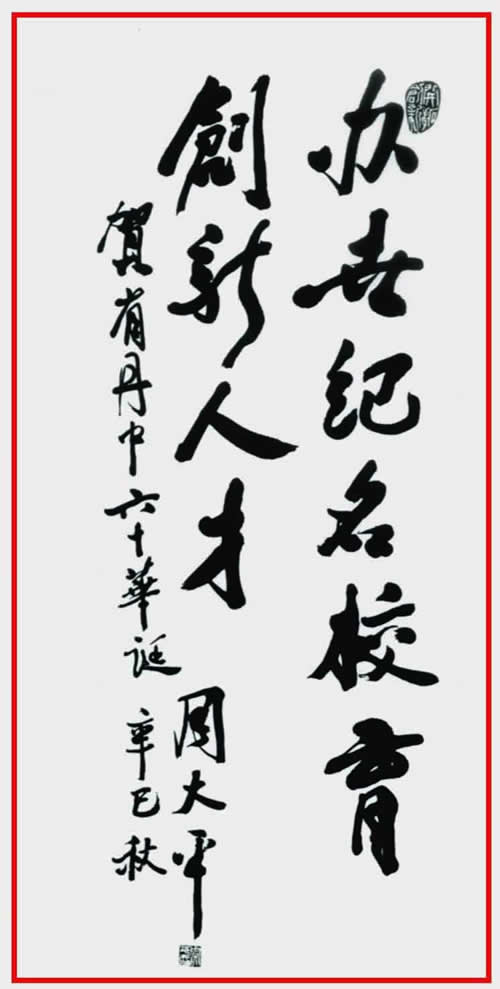 办世纪名校育
創新人才
賀省丹中六十華誕
周大平
辛巳秋